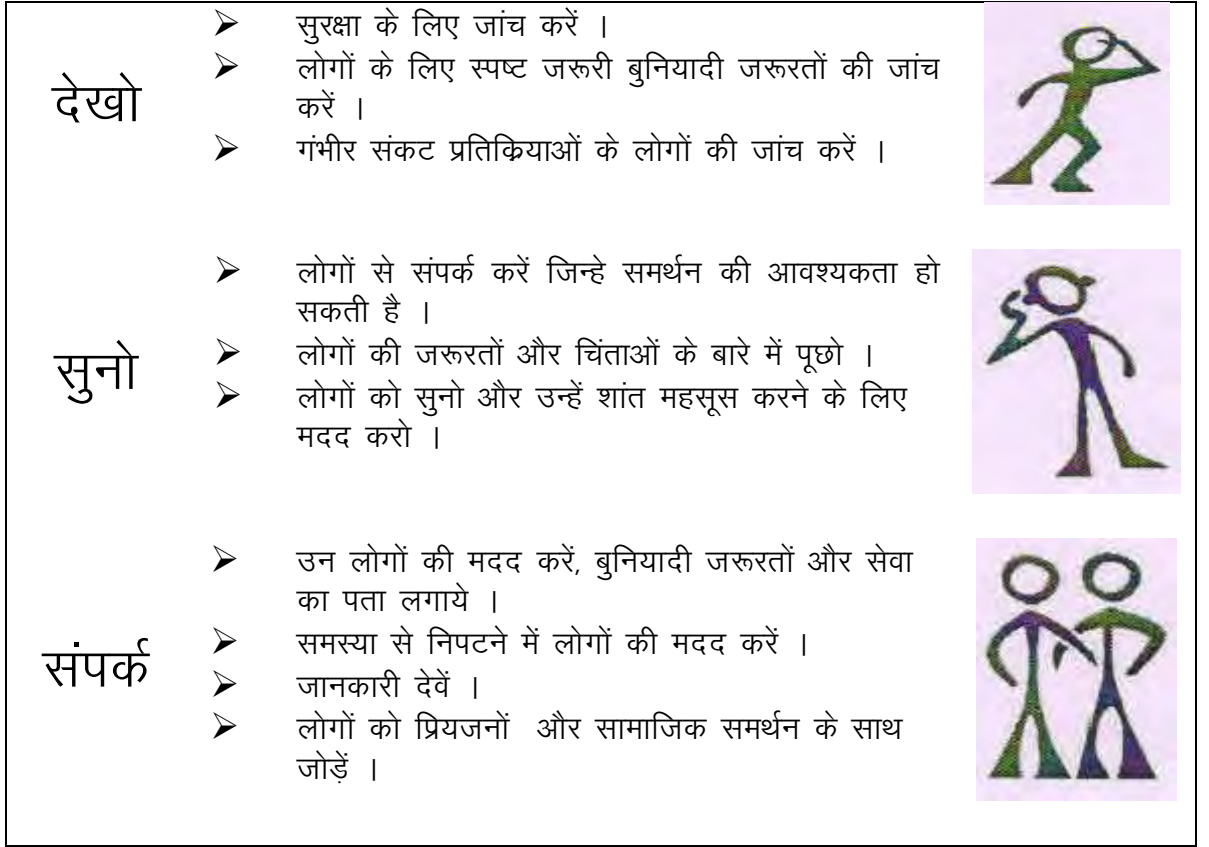 देखो
➢ सुरक्षा के लिए जांच करें ।
➢ लोगों के लिए स्पष्ट जरूरी बुनियादी जरूरतों की जांच
करें ।
➢ गंभीर संकट प्रतिक्रियाओं के लोगों की जांच करें ।
सुनो
➢ लोगों से संपर्क करें जिन्हे समर्थन की आवश्यकता हो
सकती है ।
➢ लोगों की जरूरतों और चिंताओं के बारे में पूछो ।
➢ लोगों को सुनो और उन्हें शांत महसूस करने के लिए
मदद करो ।
संपर्क
➢ उन लोगों की मदद करें, बुनियादी जरूरतों और सेवा
का पता लगाये ।
➢ समस्या से निपटने में लोगों की मदद करें ।
➢ जानकारी देवें ।
➢ लोगों को प्रियजनों और सामाजिक समर्थन के साथ
जोड़ें ।